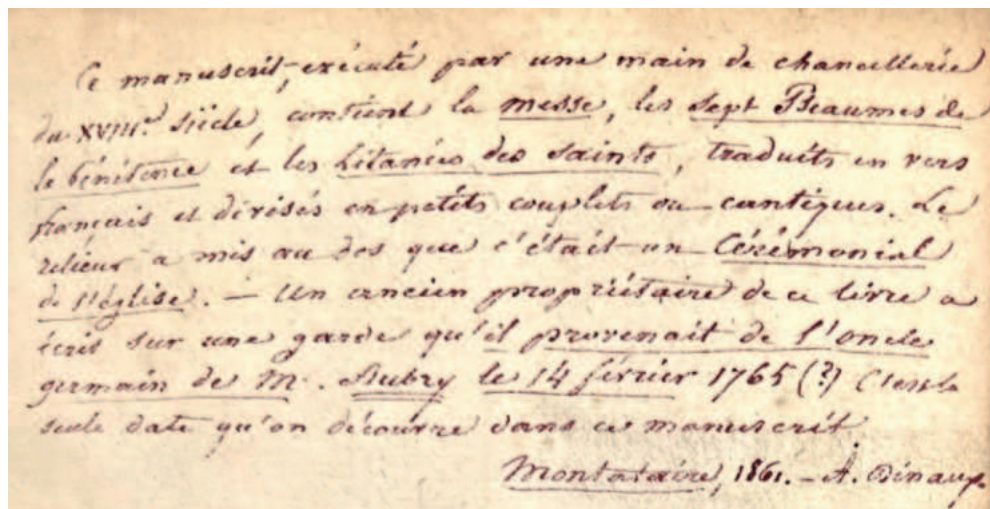 Ce manuscrit, exécuté par une main de chancellerie
du XVIIIe. Siècle, contient la messe, les Sept Pseaumes de
la Pénitence et les Litanies des Saints, traduits en vers
français et divisés en petits couplets ou cantiques. Le
relieur a mis au dos que c'était un Cérémonial
de l'église. — Un ancien propriétaire de ce livre a
écrit sur une garde qu'il provenait de l'oncle
germain de M. Aubry le 14 février 1765 (?) C'est la
seule date qu'on découvre dans ce manuscrit
Montataire, 1861. — A. Dinaux.